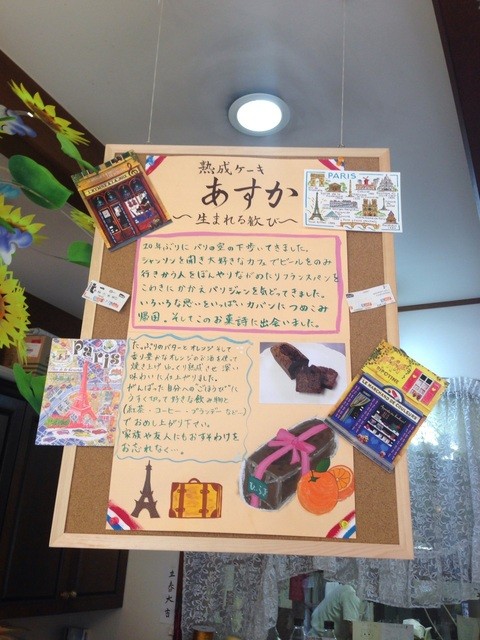 熟成ケーキ
あすか
〜生まれる歓び〜
PARIS
20年ぶりに パリの空の下歩いてきました。
シャンソンを聞き大好きなカフェでビールをのみ
行きかう人をぼんやりながめたりフランスパンを
こわきにかかえパリジャンを気どってきました。
いろいろな思いをいっぱいカバンにつめこみ
帰国。そしてこのお菓詩に出会いました。
Paris
たっぷりのバターとオレンジそして
香り豊かなオレンジのお酒を使って
焼き上げゆっくり熟成させ深い
味わいに仕上がりました。
がんばった自分への"ごほうび"に
うすく切って好きな飲み物と
(紅茶・コーヒー・ブランデーなど…)
でお召し上がり下さい。
家族や友人にもおすそわけを
お忘れなく…。
土台大吉